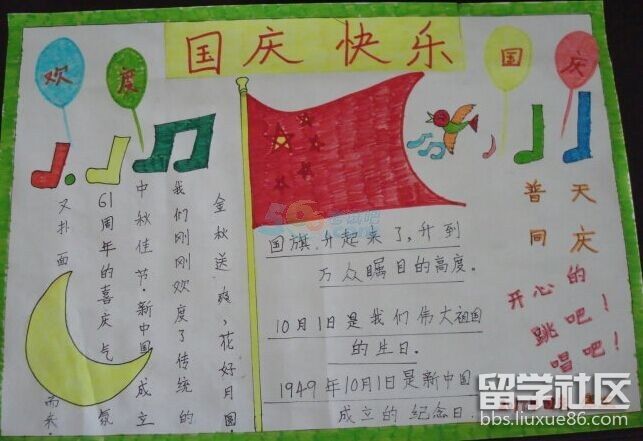 国庆 快乐
欢度
国庆
金秋送爽，花好月圆，
我们刚刚欢度了传统的
中秋佳节，新中国成立
61周年的喜庆气氛
又扑面而来。
国旗升起来了，升到
万众瞩目的高度。
10月1日是我们伟大祖国
的生日。
1949年10月1日是新中国
成立的纪念日。
普天
同庆
开心的
跳吧！
唱吧！
留学社区
bbs.liuxue86.com